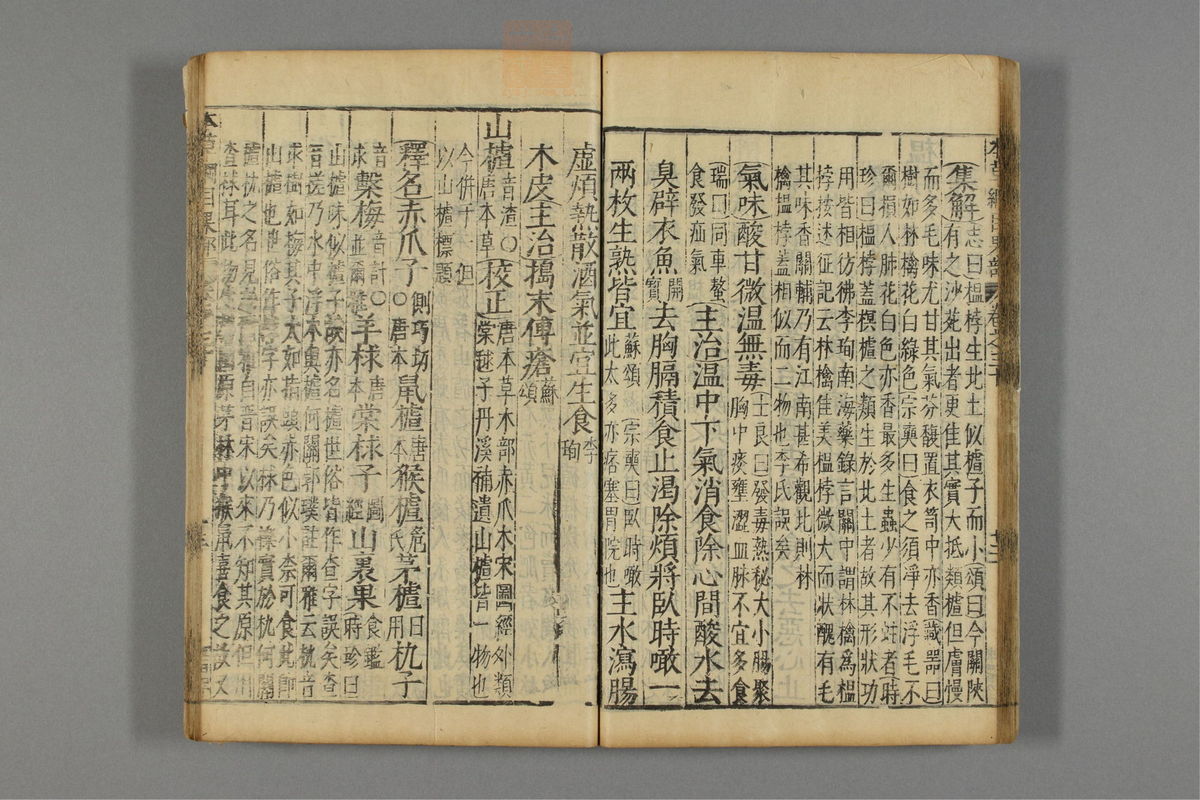 集解志曰榲桲生北土似樝子而小頌曰今關陝
有之沙苑出者更佳其實大抵類樝但膚慢
而多毛味尤甘其氣芬馥置衣笥中亦香藏器曰
樹如林檎花白綠色宗奭曰食之須淨去浮毛不
爾損人肺花白色亦香最多生蟲少有不蛀者時
珍曰榲桲蓋榠樝之類生於北土者故其形狀功
用皆相彷彿李珣南海藥錄言關中謂林檎爲榲
桲按述征記云林檎佳美榲桲微大而狀醜有毛
其味香關輔乃有江南甚希觀此則林
檎榲桲蓋相似而二物也李氏誤矣
氣味酸甘微温無毒士良曰發毒熱秘大小腸聚
胸中痰壅澀血脉不宜多食
瑞曰同車螯
食發疝氣
主治温中下氣消食除心間酸水去
臭辟衣魚開寶去胸膈積食止渴除煩將臥時噉一
兩枚生熟皆宜蘇頌宗奭曰臥時噉
此太多亦痞塞胃脘也主水瀉腸
虛煩熱散酒氣並宜生食李珣
木皮主治搗末傅瘡蘇頌
山樝音渣○唐本草校正唐本草木部赤爪木宋圖經外類
棠梂子丹溪補遺山樝皆一物也
今併于一但
以山樝標題
釋名赤爪子側巧切○唐本鼠樝唐本猴樝危氏茅樝日用朹子
音求檕梅音計○並爾雅羊梂唐本棠梂子圖經山裏果食鑑時珍曰
山樝味似樝子故亦名樝世俗皆作查字誤矣查
音槎乃水中浮木與樝何關郭璞註爾雅云朹音
求樹如梅其子大如指頭赤色似小柰可食此即
山樝也世俗作梂字亦誤矣梂乃櫟實於朹何關
樝朹之名見爾雅自晋宋以來不知其原但用
查梂耳此物生於山原茅林中猴鼠喜食之故又